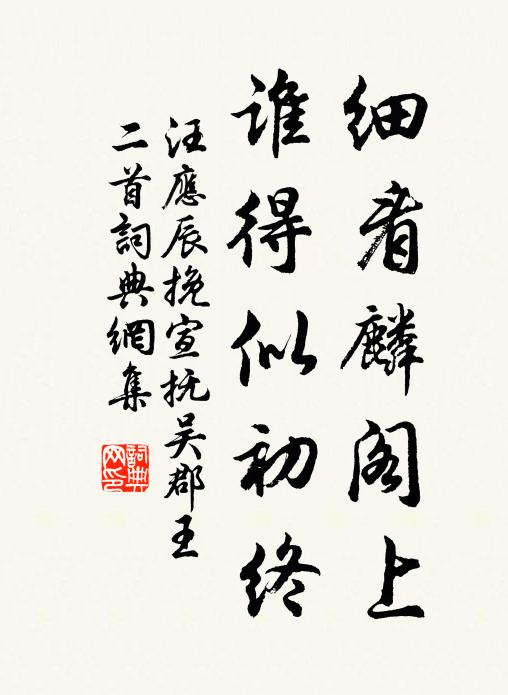 细看麟阁上
谁得似初终
汪應辰挽宣抚吴郡王
二首詞典網集
詞典
网印